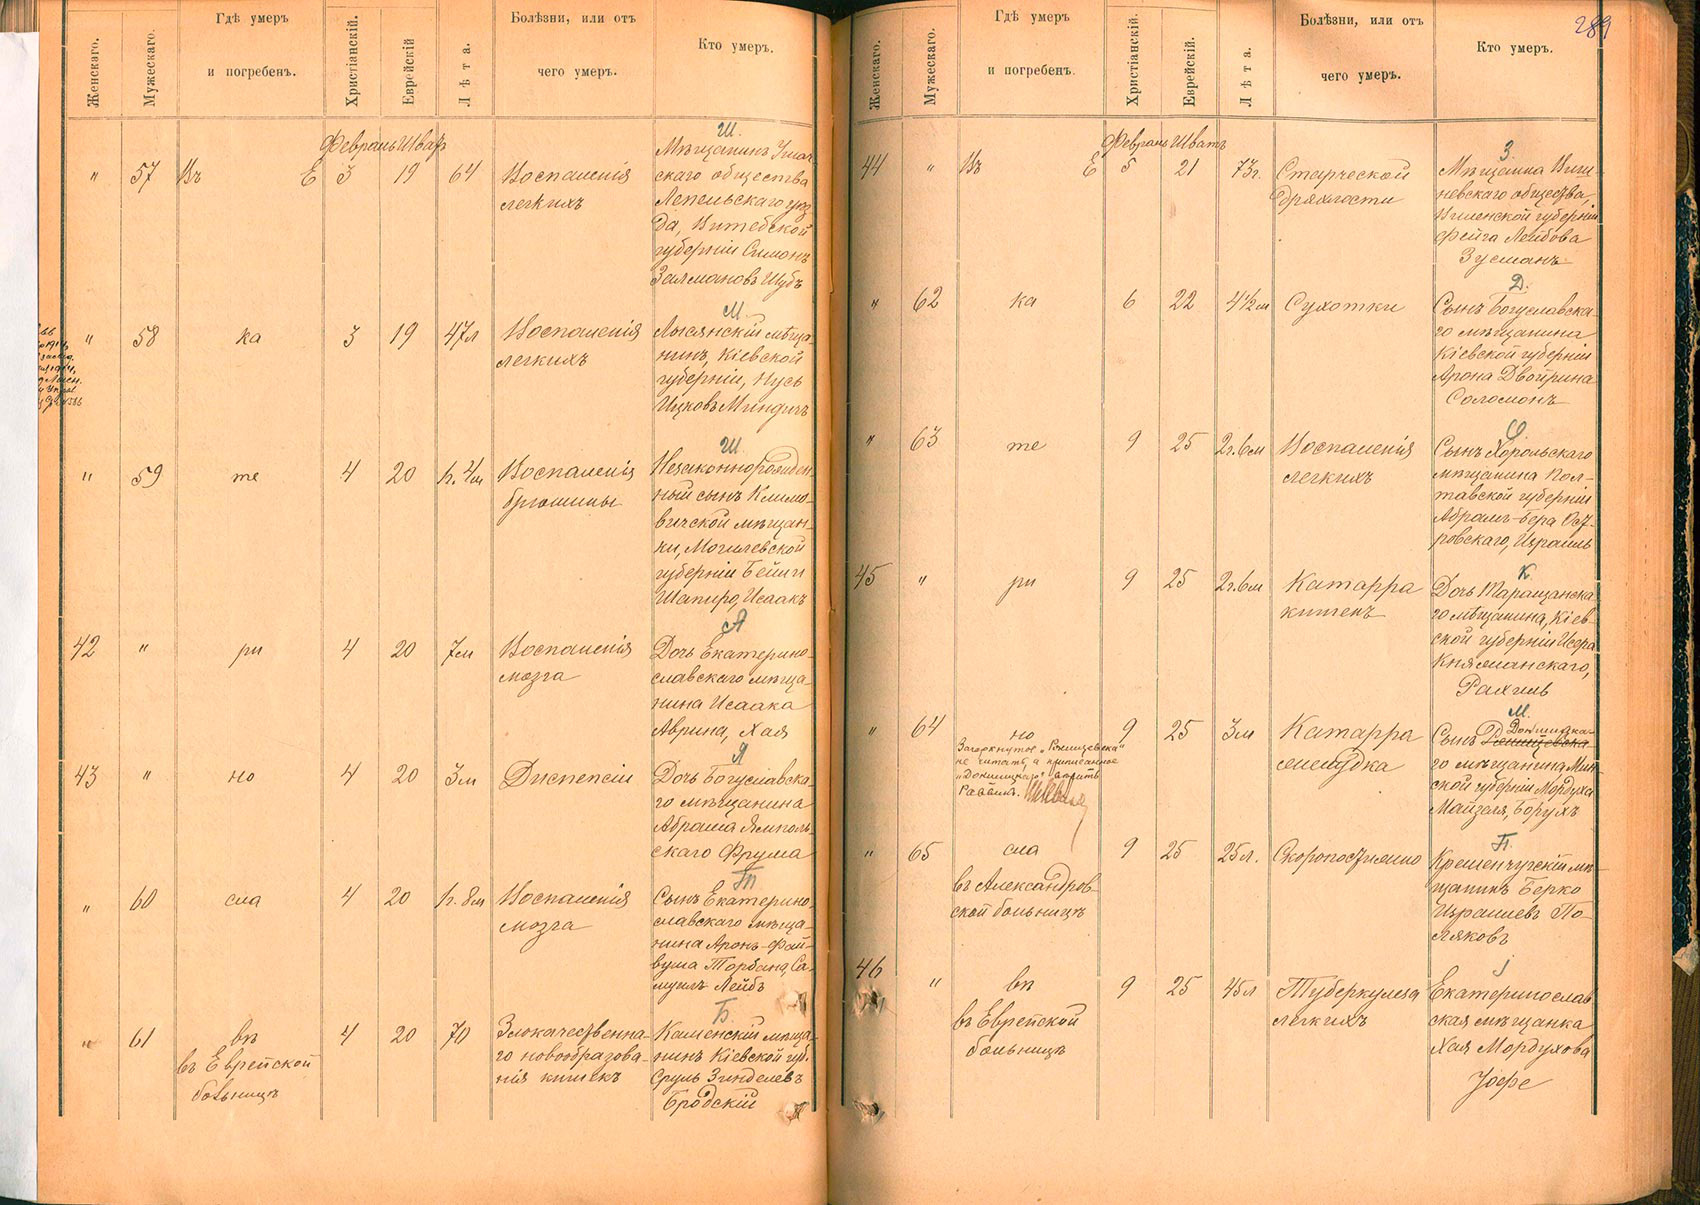 Женскаго.
Мужескаго.
Гдѣ умеръ
и погребенъ.
Христіанскій.
Еврейскій
Лѣта.
Болѣзни, или отъ
чего умеръ.
Кто умеръ.
Февраль Шватъ
" 57 Въ Е 3 19 64
Воспаленія
легкихъ
Ш.
Мѣщанинъ Ушач-
скаго общества
Лепельскаго уѣз
да, Витебской
губерніи Симонъ
Залмановъ Шубъ
" 58 ка 3 19 47л
Воспаленія
легкихъ
М.
Лысянскій мѣща-
нинъ, Кіевской
губерніи, Нусь
Ицковъ Миндичъ
" 59 те 4 20 1г. 4м
Воспаленія
брюшины
Ш
Незаконнорожден-
ный сынъ Климо-
вичской мѣщан-
ки, Могилевской
губерніи Бейли
Шапиро, Исаакъ
42 " ри 4 20 7м
Воспаленія
мозга
А
Дочь Екатерино-
славскаго мѣща-
нина Исаака
Аврина, Хая
43 " но 4 20 3м
Диспепсіи
Я
Дочь Богуславска-
го мѣщанина
Абрама Ямполь-
скаго Фрума
" 60 сла 4 20 1г. 8м
Воспаленія
мозга
Т
Сынъ Екатерино-
славскаго мѣща-
нина Аронъ-Фай-
вуша Торбана, Са-
муилъ Лейбъ
" 61 въ 4 20 70
въ Еврейской
больницѣ
Злокачественна-
го новообразова-
нія кишекъ
Б.
Каменскій мѣща-
нинъ Кіевской губ.
Сруль Зинделевъ
Бродскій
289
Женскаго.
Мужескаго.
Гдѣ умеръ
и погребенъ.
Христіанскій.
Еврейскій.
Лѣта.
Болѣзни, или отъ
чего умеръ.
Кто умеръ.
Февраль Шватъ
44 " Въ Е 5 21 73г.
Старческой
дряхлости
З.
Мѣщанка
невскаго общества,
Виленской губерніи
Фейга Лейбова
Зусманъ
" 62 ка 6 22 4½м
Сухотки
Д.
Сынъ Богуславска-
го мѣщанина
Кіевской губерніи
Арона Двойрина
Соломонъ
" 63 те 9 25 2г.6м
Воспаленія
легкихъ
О
Сынъ Хорольскаго
мѣщанина Пол-
тавской губерніи
Абрамъ-Бера Ост-
ровскаго, Израиль
45 " ри 9 25 2г.6м
Катарра
кишекъ
К
Дочь Таращанска-
го мѣщанина, Кіев-
ской губерніи Исера
Княжанскаго,
Рахиль
" 64 но 9 25 3м
Зачеркнутое
не читать, а приписанное
"Докшицкаго" вѣрить
Раввинъ.
Катарра
желудка
М.
Докшицка-
Сынъ
го мѣщанина Мин-
ской губерніи Мордуха
Майзеля, Борухъ
" 65 сла 9 25 25л.
въ Александров-
ской больницѣ
Скоропостижно
П.
Кременчугскій мѣ-
щанинъ Берко
Израилевъ По-
ляковъ
46 " въ 9 25 45л
въ Еврейской
больницѣ
Туберкулеза
легкихъ
Екатеринослав-
ская мѣщанка
Хая Мордухова
Іофе